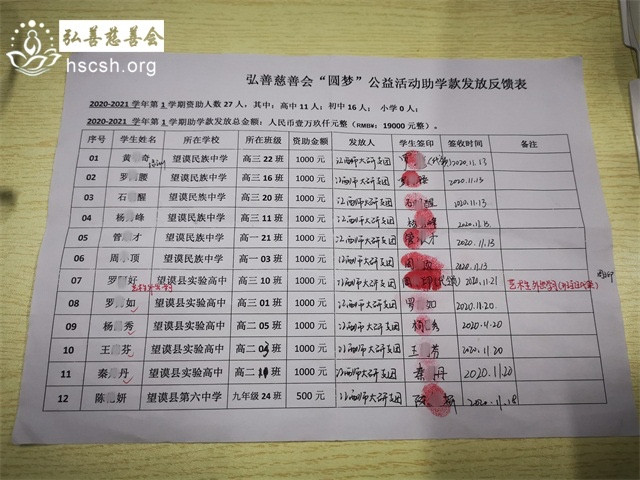 弘善慈善会
hscsh.org
弘善慈善会“圆梦”公益活动助学款发放反馈表
2020-2021 学年第1学期资助人数 27 人，其中：高中 11 人；初中 16 人；小学 0 人；
2020-2021 学年第1学期助学款发放总金额：人民币壹万玖仟元整（RMB¥：19000 元整）。
序号 学生姓名 所在学校 所在班级 资助金额 发放人 学生签印 签收时间 备注
01 黄 奇 望谟民族中学 高三 22 班 1000 元 江西师大研支团 2020.11.13
02 罗 腰 望谟民族中学 高三 16 班 1000 元 江西师大研支团 2020.11.13
03 石 醒 望谟民族中学 高三 20 班 1000 元 江西师大研支团 石 醒 2020.11.13
04 杨 峰 望谟民族中学 高三 11 班 1000 元 江西师大研支团 杨 峰 2020.11.13
05 管 才 望谟民族中学 高一 21 班 1000 元 江西师大研支团 管 才 2020.11.13
06 周 顶 望谟民族中学 高一 03 班 1000 元 江西师大研支团 周 2020.11.13
07 罗 好 望谟县实验高中 高三 10 班 1000 元 江西师大研支团 (代领) 2020.11.21 艺术生外出学习
08 罗 如 望谟县实验高中 高三 01 班 1000 元 江西师大研支团 罗 如 2020.11.20
09 杨 秀 望谟县实验高中 高二 05 班 1000 元 江西师大研支团 杨 秀 2020.11.20
10 王 芬 望谟县实验高中 高二 03 班 1000 元 江西师大研支团 王 芬 2020.11.20
11 秦 丹 望谟县实验高中 高二 班 1000 元 江西师大研支团 秦 丹 2020.11.20
12 陈 妍 望谟县第六中学 九年级 24 班 500 元 江西师大研支团 陈 妍 2020.11.18